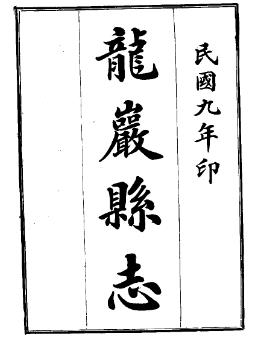 民國九年印
龍巖縣志